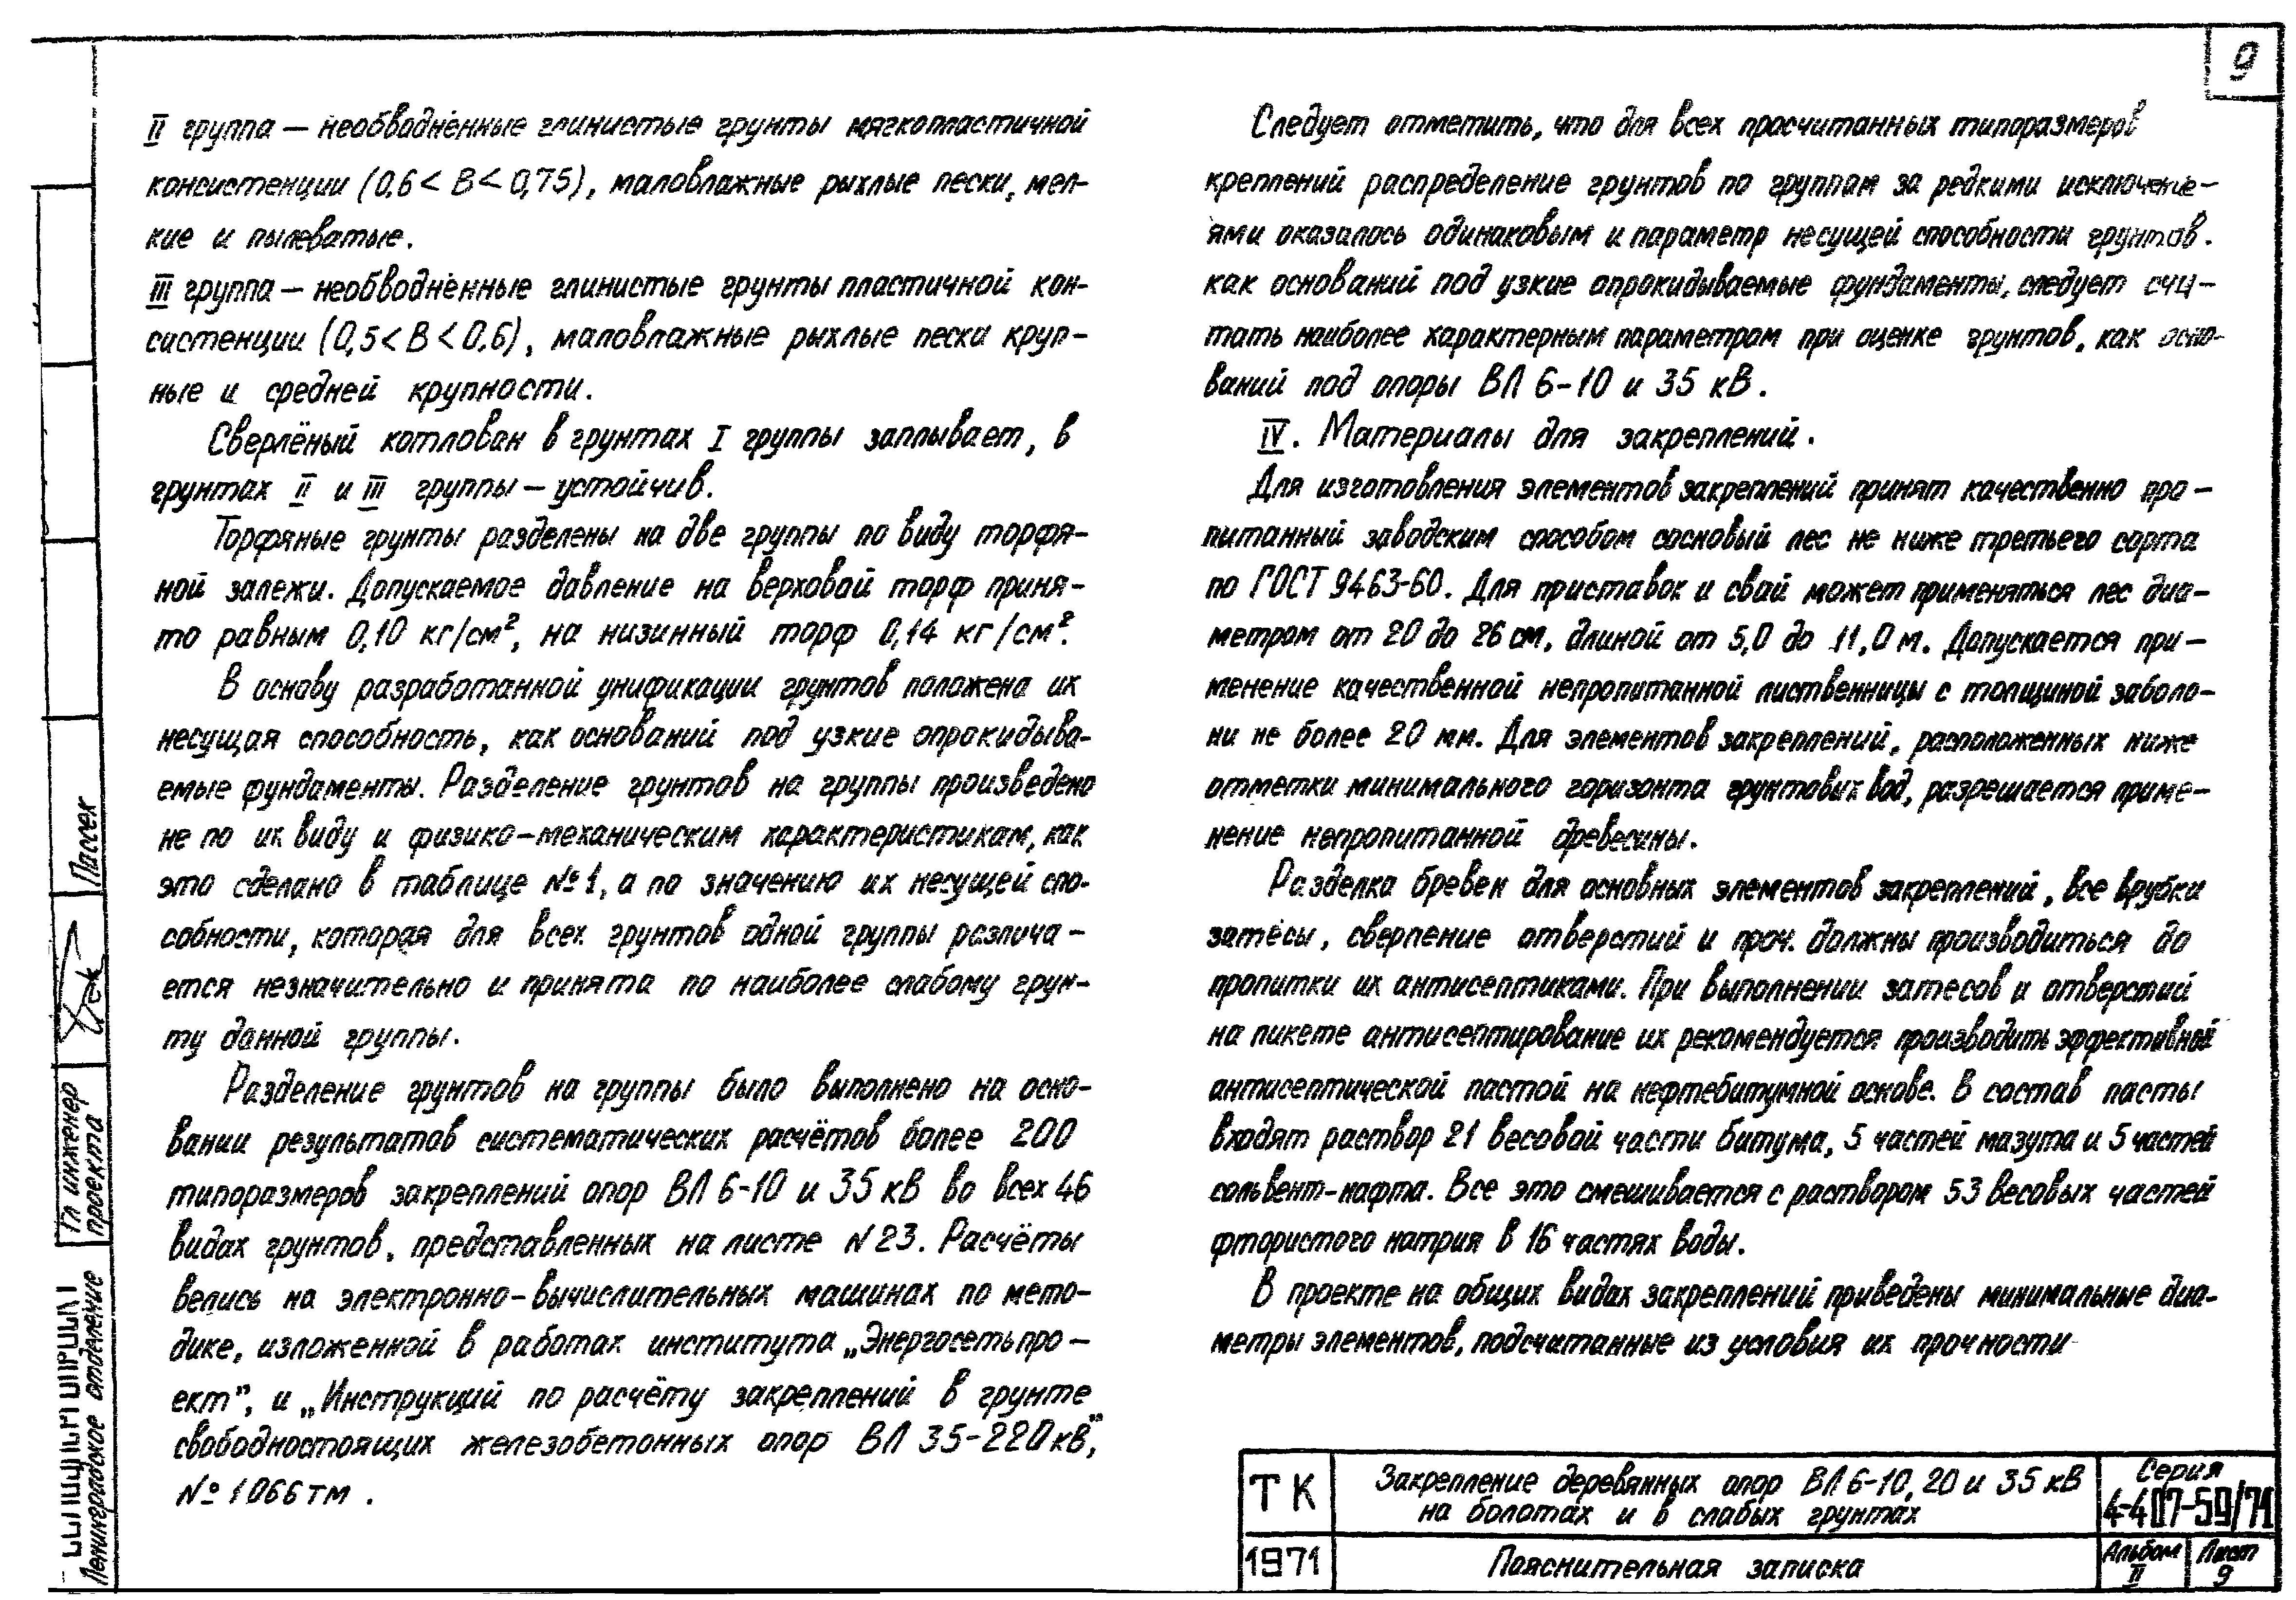 9
II группа — необводнённые глинистые грунты мягкопластичной
консистенции (0,6 < В < 0,75), маловлажные рыхлые пески, мел-
кие и пылеватые.
III группа — необводнённые глинистые грунты пластичной кон-
систенции (0,5 < В < 0,6), маловлажные рыхлые пески круп-
ные и средней крупности.
Сверлёный котлован в грунтах I группы заплывает, в
грунтах II и III группы — устойчив.
Торфяные грунты разделены на две группы по виду торфя-
ной залежи. Допускаемое давление на верховой торф приня-
то равным 0,10 кг/см², на низинный торф 0,14 кг/см².
В основу разработанной унификации грунтов положена их
несущая способность, как оснований под узкие опрокидыва-
емые фундаменты. Разделение грунтов на группы произведено
не по их виду и физико-механическим характеристикам, как
это сделано в таблице №1, а по значению их несущей спо-
собности, которая для всех грунтов одной группы различа-
ется незначительно и принята по наиболее слабому грун-
ту данной группы.
Разделение грунтов на группы было выполнено на осно-
вании результатов систематических расчётов более 200
типоразмеров закреплений опор ВЛ 6-10 и 35 кВ во всех 46
видах грунтов, представленных на листе N 23. Расчёты
велись на электронно-вычислительных машинах по мето-
дике, изложенной в работах института „Энергосетьпро-
ект”, и „Инструкций по расчёту закреплений в грунте
свободностоящих железобетонных опор ВЛ 35-220 кВ”,
№ 1066 тм.
Следует отметить, что для всех просчитанных типоразмеров
креплений распределение грунтов по группам за редкими исключени-
ями оказалось одинаковым и параметр несущей способности грунтов.
как оснований под узкие опрокидываемые фундаменты, следует счи-
тать наиболее характерным параметром при оценке грунтов, как осно-
ваний под опоры ВЛ 6-10 и 35 кВ.
IV. Материалы для закреплений.
Для изготовления элементов закреплений принят качественно про-
питанный заводским способом сосновый лес не ниже третьего сорта
по ГОСТ 9463-60. Для приставок и свай может применяться лес диа-
метром от 20 до 26 см, длиной от 5,0 до 11,0 м. Допускается при-
менение качественной непропитанной лиственницы с толщиной заболо-
ни не более 20 мм. Для элементов закреплений, расположенных ниже
отметки минимального горизонта грунтовых вод, разрешается приме-
нение непропитанной древесины.
Разделка бревен для основных элементов закреплений, все врубки
затёсы, сверление отверстий и проч. должны производиться до
пропитки их антисептиками. При выполнении затесов и отверстий
на пикете антисептирование их рекомендуется производить эффективной
антисептической пастой на нефтебитумной основе. В состав пасты
входят раствор 21 весовой части битума, 5 частей мазута и 5 частей
сольвент-нафта. Все это смешивается с раствором 53 весовых частей
фтористого натрия в 16 частях воды.
В проекте на общих видах закреплений приведены минимальные диа-
метры элементов, подсчитанные из условия их прочности
ТК
Закрепление деревянных опор ВЛ 6-10, 20 и 35 кВ
на болотах и в слабых грунтах
Серия
4-407-59/71
1971
Пояснительная записка
Альбом
II
Лист
9
Пассек
Гл инженер
проекта
Ленинградское отделение